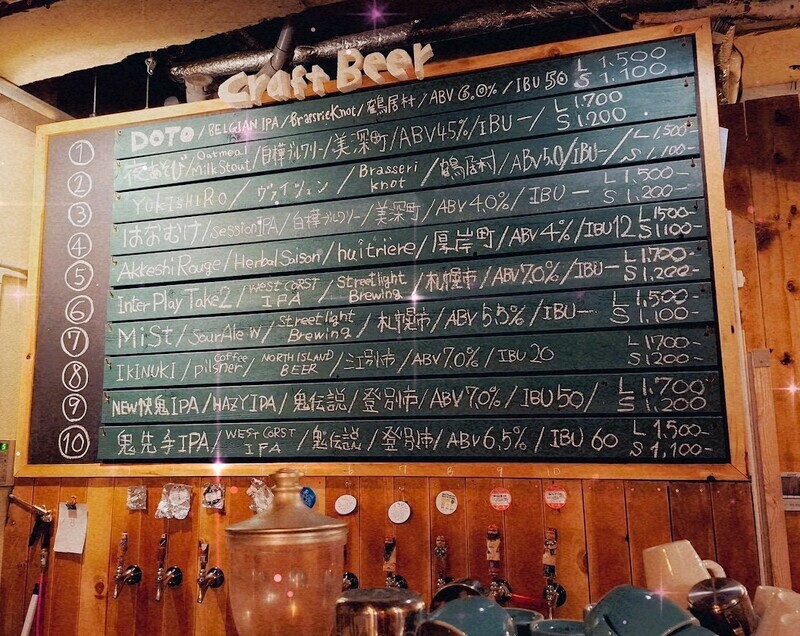 Craft Beer
① DOTO / BELGIAN IPA / Brasserie Knot / 鶴居村 / ABV 6.0% / IBU 50 L 1,500 S 1,100
② 夜あそび / Oatmeal Milk Stout / 白樺ブルワリー / 美深町 / ABV 4.5% / IBU — L 1,700 S 1,200
③ YUKISHIRO / ヴァイツェン / Brasseri knot / 鶴居村 / ABV 5.0 / IBU — L 1,500- S 1,100-
④ はなむけ / Session IPA / 白樺ブルワリー / 美深町 / ABV 4.0% / IBU — L 1,500- S 1,200-
⑤ Akkeshi Rouge / Herbal Saison / huitrière / 厚岸町 / ABV 4% / IBU 12 L 1,500- S 1,100-
⑥ Inter Play Take2 / WEST CORST IPA / Streetlight Brewing / 札幌市 / ABV 7.0% / IBU — L 1,700- S 1,200-
⑦ MiSt / Sour Ale W / Streetlight Brewing / 札幌市 / ABV 5.5% / IBU — L 1,500- S 1,100-
⑧ IKINUKI / Coffee pilsner / NORTH ISLAND BEER / 江別市 / ABV 7.0% / IBU 20 L 1,700- S 1,200-
⑨ NEW 快鬼IPA / HAZY IPA / 鬼伝説 / 登別市 / ABV 7.0% / IBU 50 / L 1,700- S 1,200
⑩ 鬼先手IPA / WEST CORST IPA / 鬼伝説 / 登別市 / ABV 6.5% / IBU 60 L 1,500- S 1,100-